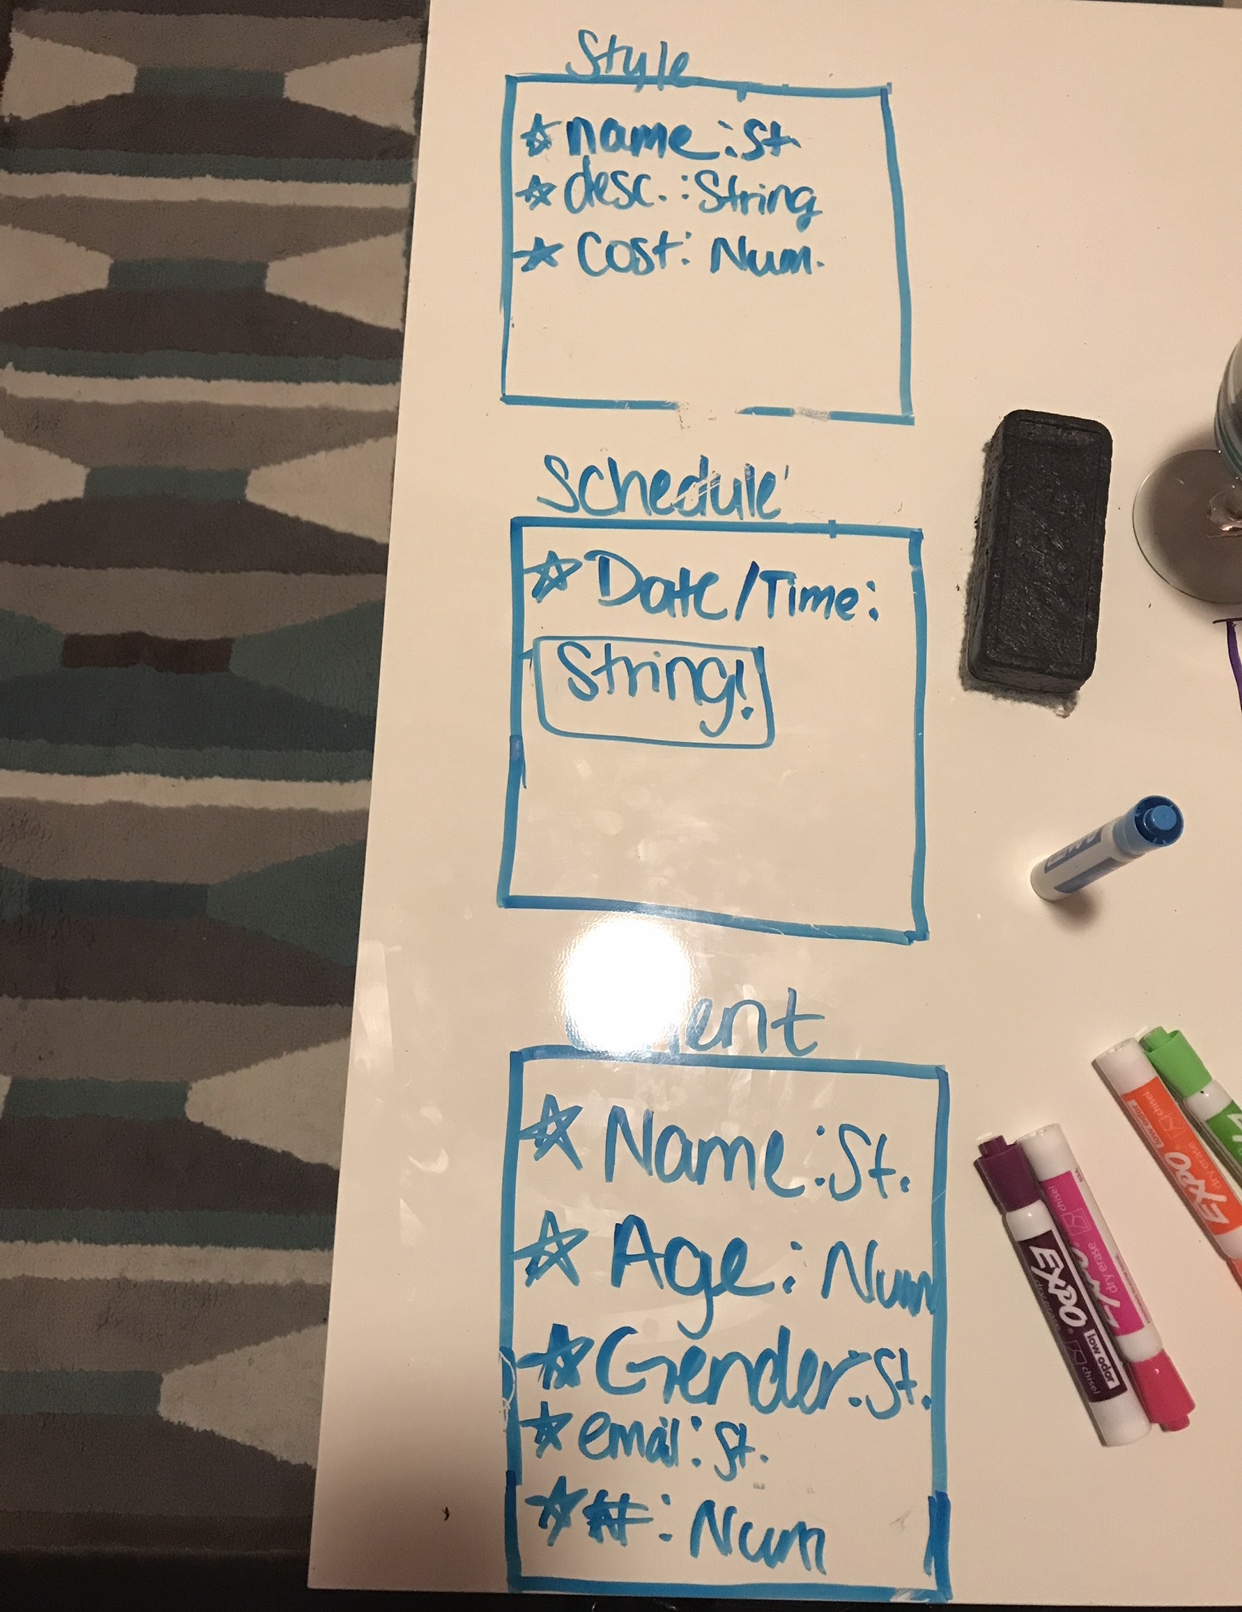 Style
☆ name: St.
☆ desc.: String
☆ Cost: Num.
Schedule
☆ Date/Time:
String!
ent
☆ Name: St.
☆ Age: Num
☆ Gender: St.
☆ email: St.
☆ #: Num
EXPO
low odor
chisel
dry erase
chisel
EXPO
dry erase
chisel